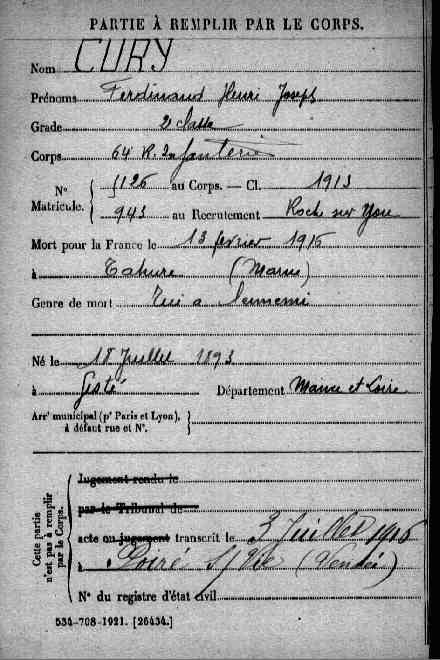 PARTIE À REMPLIR PAR LE CORPS.
Nom CURY
Prénoms Ferdinand Henri Joseph
Grade 2e classe
Corps 64 R. Infanterie
N° Matricule. { 1126 au Corps. — Cl. 1913
943 au Recrutement Roche sur Yon
Mort pour la France le 13 février 1916
à Tahure (Marne)
Genre de mort Tué à l'ennemi
Né le 18 Juillet 1893
à Gesté Département Maine et Loire
Arrt municipal (pr Paris et Lyon), à défaut rue et N°. }
Cette partie n'est pas à remplir par le Corps.
Jugement rendu le
par le Tribunal de
acte ou jugement transcrit le 3 Juillet 1916
à Poiré s/ Vie (Vendée)
N° du registre d'état civil
534-708-1921. [26434.]